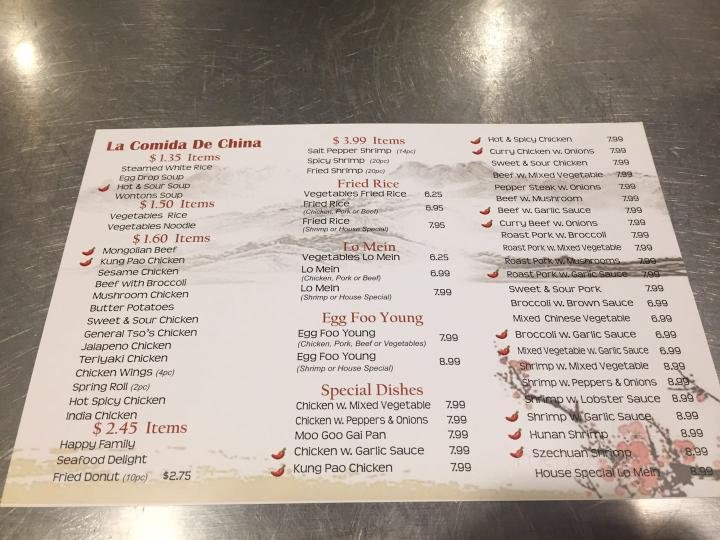 La Comida De China
$ 1.35 Items
Steamed White Rice
Egg Drop Soup
Hot & Sour Soup
Wontons Soup
$ 1.50 Items
Vegetables Rice
Vegetables Noodle
$ 1.60 Items
Mongolian Beef
Kung Pao Chicken
Sesame Chicken
Beef with Broccoli
Mushroom Chicken
Butter Potatoes
Sweet & Sour Chicken
General Tso's Chicken
Jalapeno Chicken
Teriyaki Chicken
Chicken Wings (4pc)
Spring Roll (2pc)
Hot Spicy Chicken
India Chicken
$ 2.45 Items
Happy Family
Seafood Delight
Fried Donut (10pc) $2.75
$ 3.99 Items
Salt Pepper Shrimp (14pc)
Spicy Shrimp (20pc)
Fried Shrimp (20pc)
Fried Rice
Vegetables Fried Rice 6.25
Fried Rice 6.95
(Chicken, Pork or Beef)
Fried Rice 7.95
(Shrimp or House Special)
Lo Mein
Vegetables Lo Mein 6.25
Lo Mein 6.99
(Chicken, Pork or Beef)
Lo Mein 7.99
(Shrimp or House Special)
Egg Foo Young
Egg Foo Young 7.99
(Chicken, Pork, Beef or Vegetables)
Egg Foo Young 8.99
(Shrimp or House Special)
Special Dishes
Chicken w. Mixed Vegetable 7.99
Chicken w. Peppers & Onions 7.99
Moo Goo Gai Pan 7.99
Chicken w. Garlic Sauce 7.99
Kung Pao Chicken 7.99
Hot & Spicy Chicken 7.99
Curry Chicken w. Onions 7.99
Sweet & Sour Chicken 7.99
Beef w. Mixed Vegetable 7.99
Pepper Steak w. Onions 7.99
Beef w. Mushroom 7.99
Beef w. Garlic Sauce 7.99
Curry Beef w. Onions 7.99
Roast Pork w. Broccoli 7.99
Roast Pork w. Mixed Vegetable 7.99
Roast Pork w. Mushrooms 7.99
Roast Pork w. Garlic Sauce 7.99
Sweet & Sour Pork 7.99
Broccoli w. Brown Sauce 6.99
Mixed Chinese Vegetable 6.99
Broccoli w. Garlic Sauce 6.99
Mixed Vegetable w. Garlic Sauce 6.99
Shrimp w. Mixed Vegetable 8.99
Shrimp w. Peppers & Onions 8.99
Shrimp w. Lobster Sauce 8.99
Shrimp w. Garlic Sauce 8.99
Hunan Shrimp 8.99
Szechuan Shrimp 8.99
House Special Lo Mein 8.99